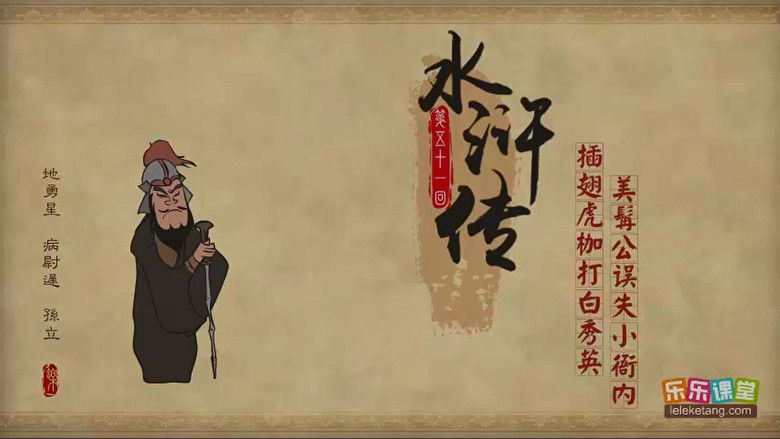 水浒传
第五十一回
插翅虎枷打白秀英
美髯公误失小衙内
地勇星 病尉遲 孫立
樂
乐乐课堂
leleketang.com